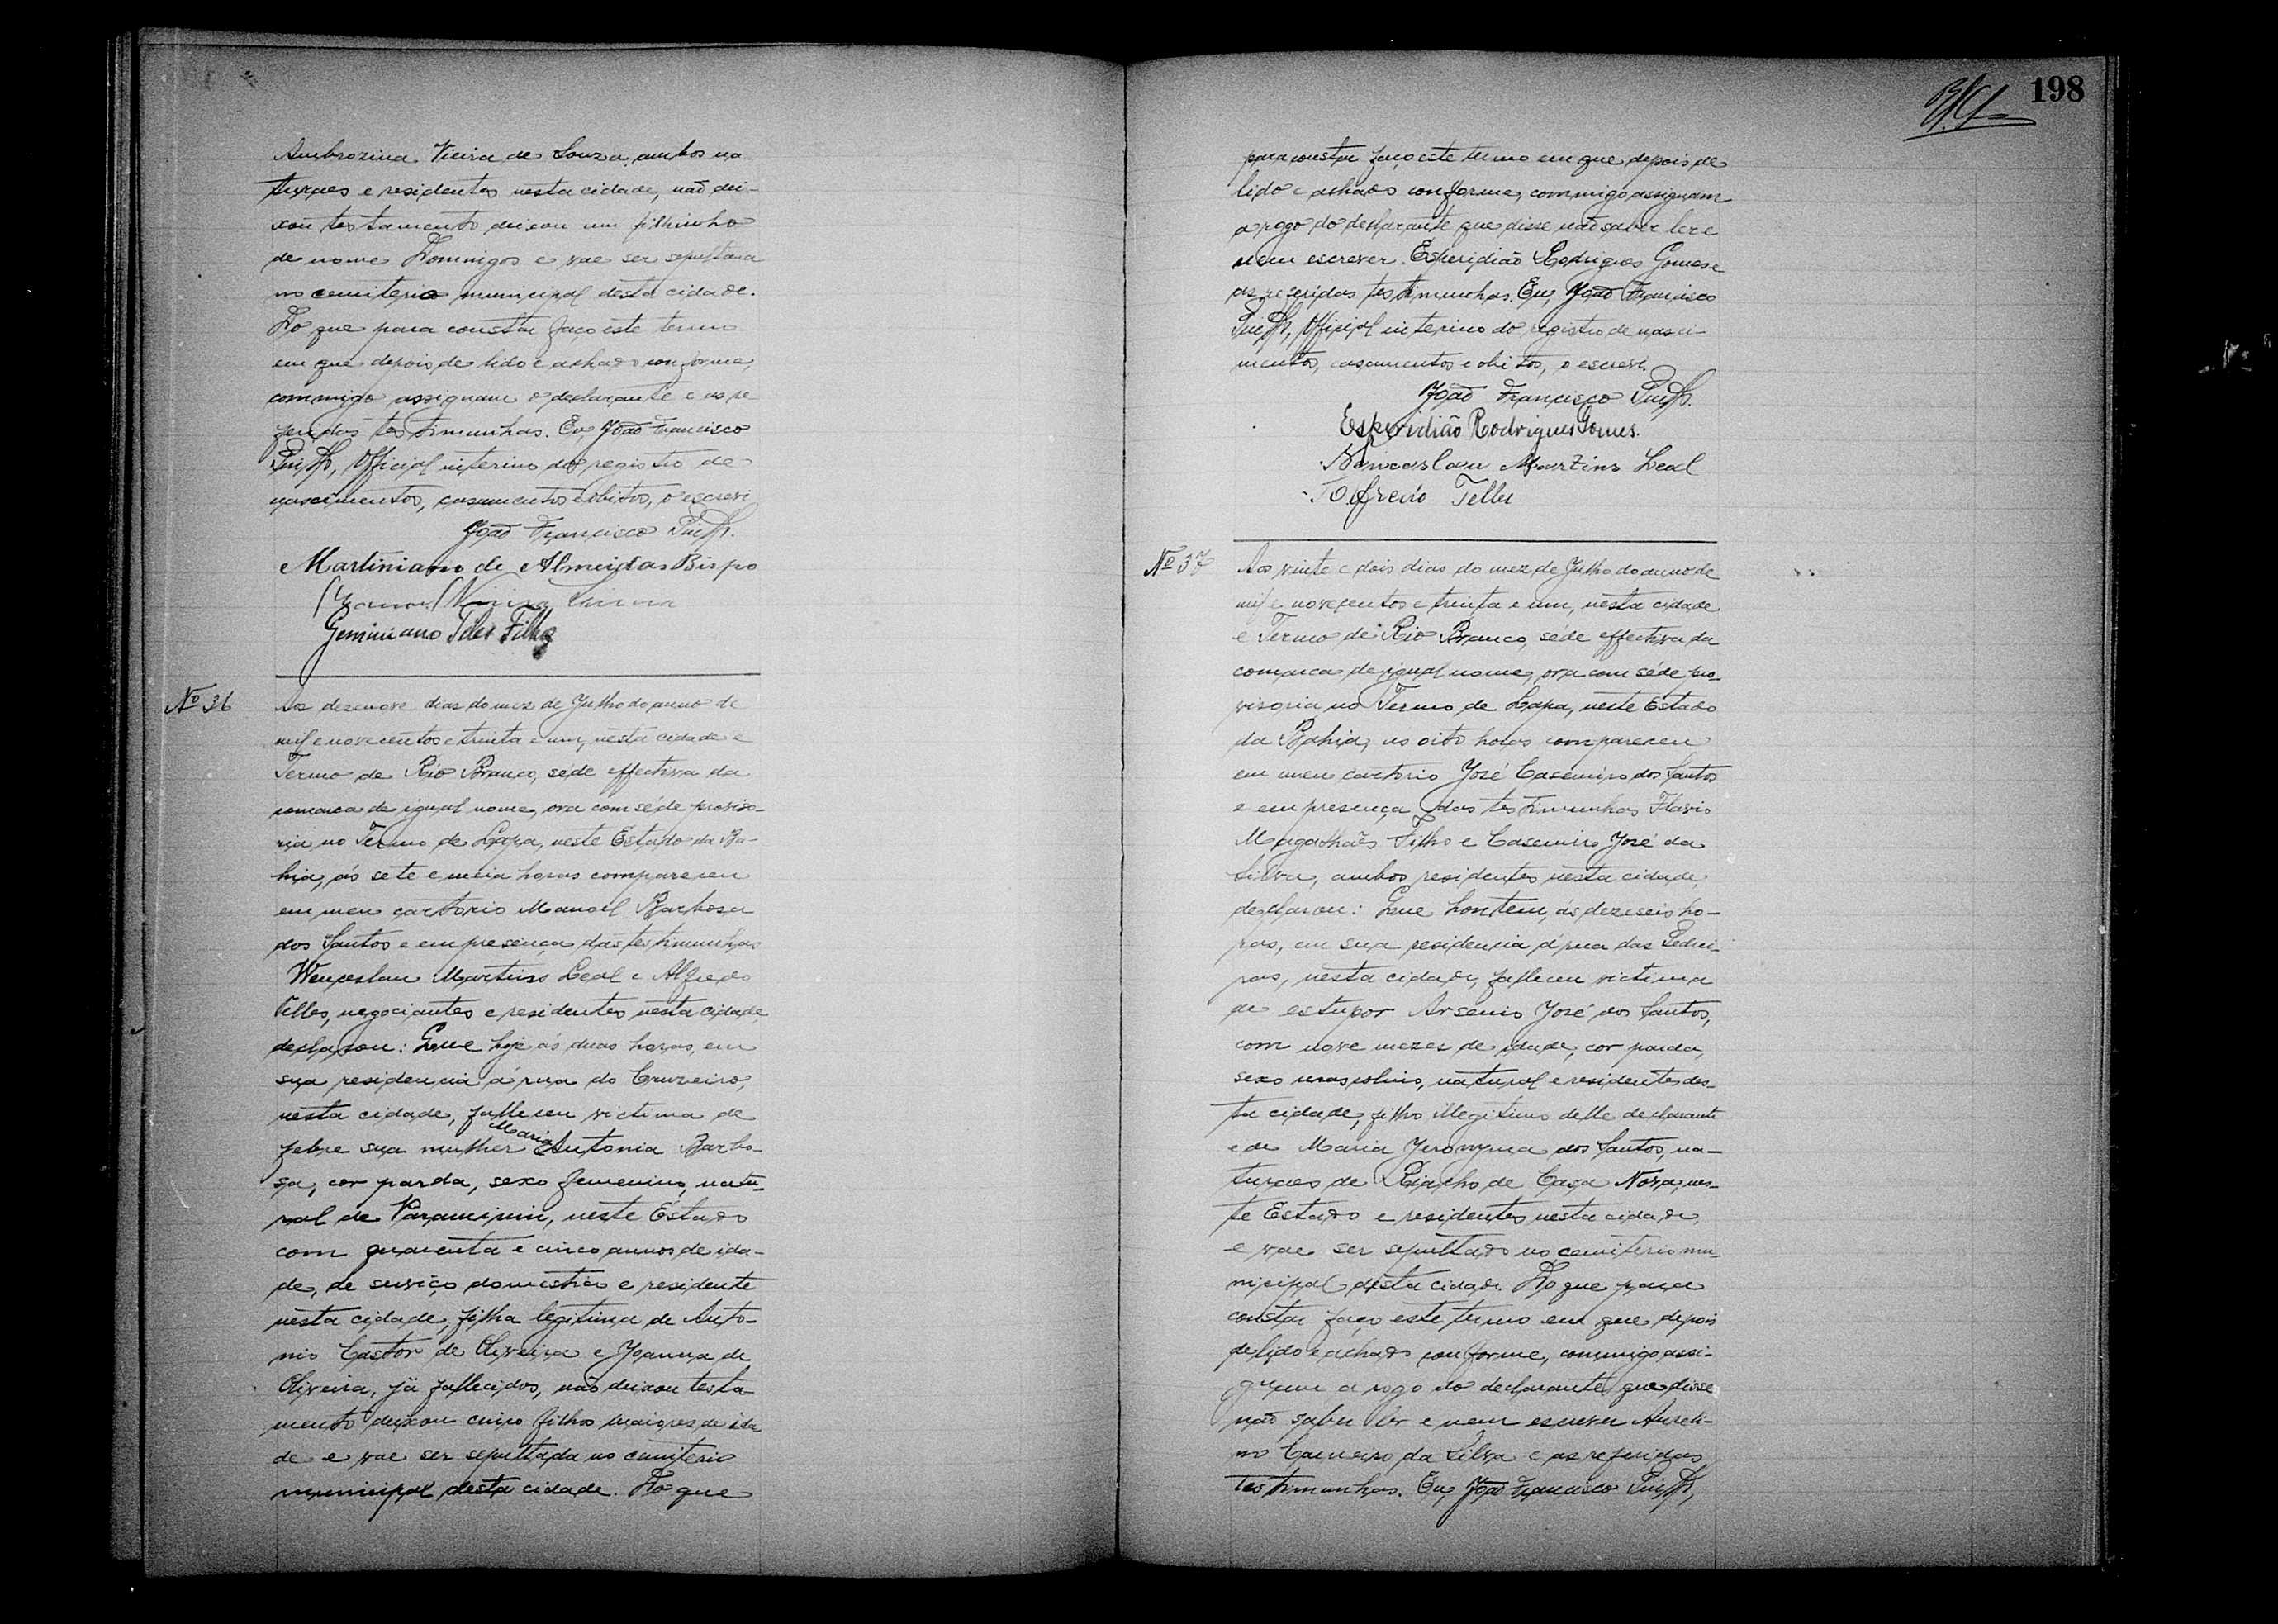 Ambrozina Vieira de Souza, ambos na-
turaes e residentes nesta cidade, não dei-
xou testamento deixou um filhinho
de nome Domingos e vae ser sepultada
no cemiterio municipal desta cidade.
Do que para constar faço este termo
em que depois de lido e achado conforme,
commigo assignam o declarante e as re-
feridas testimunhas. Eu, João Francisco
Official interino do registro de
nascimentos, casamentos e obitos, o escrevi
João Francisco
Martiniano de Almeida Bispo
Manoel Vieira
Geminiano Teles Filho
Nº 36
Aos desenove dias do mez de Julho do anno de
mil e novecentos e trinta e um, nesta cidade e
Termo de Rio Branco, séde effectiva da
comarca de igual nome, ora com séde proviso-
ria no Termo de Lapa, neste Estado da Ba-
hia, ás sete e meia horas compareceu
em meu cartorio Manoel Barbosa
dos Santos e em presença das testimunhas
Wenceslau Martins Leal e Alfredo
Telles, negociantes e residentes nesta cidade,
declarou: Que hoje ás duas horas, em
sua residencia á rua do Cruzeiro,
nesta cidade, falleceu victima de
febre sua mulher Maria Antonia Barbo-
sa, cor parda, sexo femenino, natu-
ral de Paramirim, neste Estado
com quarenta e cinco annos de ida-
de, de serviço domestico e residente
nesta cidade, filha legitima de Anto-
nio Castor de Oliveira e Joanna de
Oliveira, já fallecidos, não deixou testa-
mento deixou cinco filhos maiores de ida
de e vae ser sepultada no cemiterio
municipal desta cidade. Do que
198
para constar faço este termo em que depois de
lido e achado conforme, commigo assignam
a rogo do declarante que disse não saber ler e
nem escrever. Esperidião Rodrigues Gomes e
as referidas testimunhas. Eu, João Francisco
Official interino do registro de nasci-
mentos, casamentos e obitos, o escrevi.
João Francisco
Esperidião Rodrigues Gomes.
Wenceslau Martins Leal
Alfredo Telles
Nº 37
Aos vinte e dois dias do mez de Julho do anno de
mil e novecentos e trinta e um, nesta cidade
e Termo de Rio Branco, séde effectiva da
comarca de igual nome, ora com séde pro-
visoria no Termo de Lapa, neste Estado
da Bahia, as oito horas compareceu
em meu cartorio José Casemiro dos Santos
e em presença das testimunhas Flavio
Magalhães Filho e Casemiro José da
Silva, ambos residentes nesta cidade,
declarou: Que hontem, ás dezeseis ho-
ras, em sua residencia á rua das Pedrei-
ras, nesta cidade, falleceu victima
de estupor Arsenio José dos Santos,
com nove mezes de idade, cor parda,
sexo masculino, natural e residente des-
ta cidade, filho illegitimo delle declarante
e de Maria Jeronyma dos Santos, na-
turaes de Riacho de Casa Nova, nes-
te Estado e residentes nesta cidade,
e vae ser sepultado no cemiterio mu-
nicipal desta cidade. Do que para
constar faço este termo em que depois
de lido e achado conforme, commigo assi-
gnam a rogo do declarante que disse
não saber ler e nem escrever Aureli-
no Carneiro da Silva e as referidas
testimunhas. Eu, João Francisco